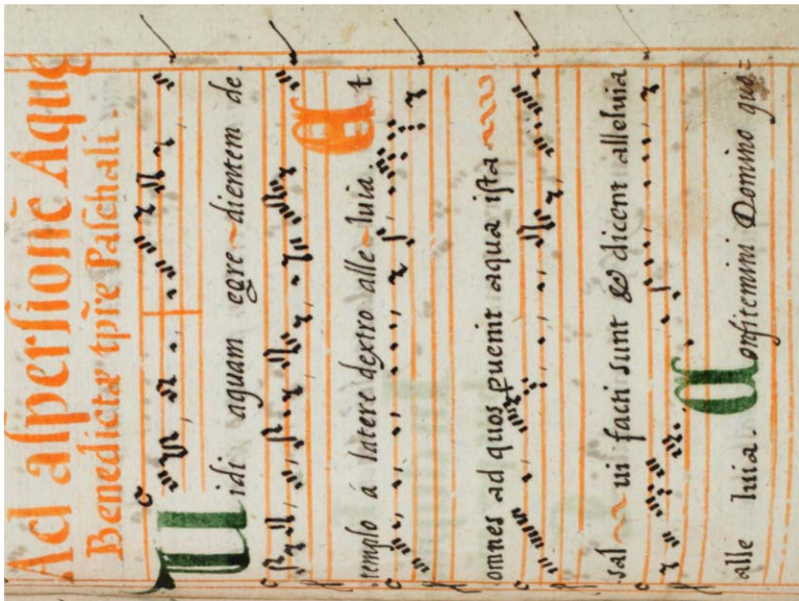 Ad aspersionē Aquę
Benedictæ tp̄re Paschali.
Vidi aquam egre~dientem de.
templo á latere dextro alle~luia. Et
omnes ad quos puenit aqua ista
sal~ui facti sunt & dicent alleluia
alle luia. Confitemini Domino quō=